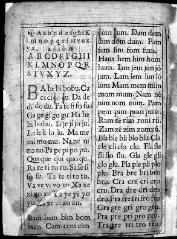 A a b c d e f g h i k
l m n o p q r ſ s t v u x
y z. a e i o u
A B C D E F G H I
K L M N O P Q R
S T V X Y Z.
BA be bi bo bu. Ca
ce ci co cu. Da de
di do du. Fa fe fi fo fu
Ga ge gi go gu. Ha he
hi ho hu. Ia ie ii io iu.
La le li lo lu. Ma me
mi mo mu. Na ne ni
no nu. Pa pe pi po pu.
Qua que qui quo qu.
Ra re ri ro ru. Sa ſe ſi
ſo ſu. Ta te ti to tu.
Va ve vi vo vu. Xa xe
xi xo xu. ya ye yi yo
yu. Za ze zi zo zu.
Bam bem bim bom
bum. Cam cem cim
com cum. Dam dem
dim dom dum. Fam
fem fim fom fum.
Ham hem him hom
hum. Iam iem iim iom
ium. Lam lem lim lom
lum. Mam mem mim
mom mum. Nam nem
nim nom num. Pam
pem pim pom pum.
Ram rem rim rom rum.
Zam zem zim zom zum.
Bla ble bli blo blu Cla
cle cli clo clu. Fla fle
fli flo flu. Gla gle gli
glo glu. Pla ple pli plo
plu. Bra bre bri bro
bru. Cra cre cri cro
cru. Dra dre dri dro
dru Fra fre fri fro fru
Gra gre gri gro gru.
Pra pre pri pro pru.
Tra tre tri tro tru.